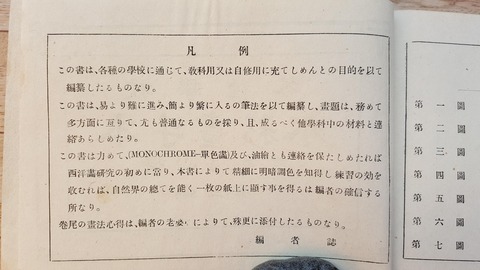 凡例
この書は、各種の學校に通じて、敎科用又は自修用に充てしめんとの目的を以て
編纂したるものなり。
この書は、易より難に進み、簡より繁に入るの筆法を以て編纂し、畫題は、務めて
多方面に亘りて、尤も普通なるものを採り、且、成るべく他學科中の材料と連
絡あらしめたり。
この書は力めて、(MONOCHROME–單色畵)及び、油繪とも連絡を保たしめたれば
西洋畵研究の初めに當り、本書によりて精細に明暗調色を知得し練習の効を
收むれば、自然界の總てを能く一枚の紙上に顯す事を得るは編者の確信する
所なり。
卷尾の畫法心得は、編者の老婆心によりて、殊更に添付したるものなり。
編者誌
第一圖
第二圖
第三圖
第四圖
第五圖
第六圖
第七圖